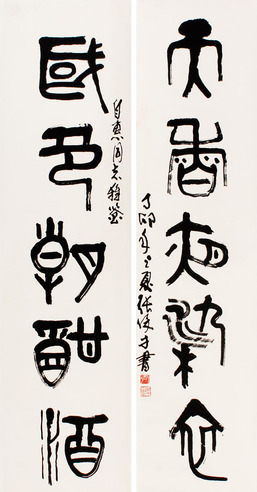 天香夜染衣
丁卯年之夏張才書
惠同志雅鉴
國色朝酣酒